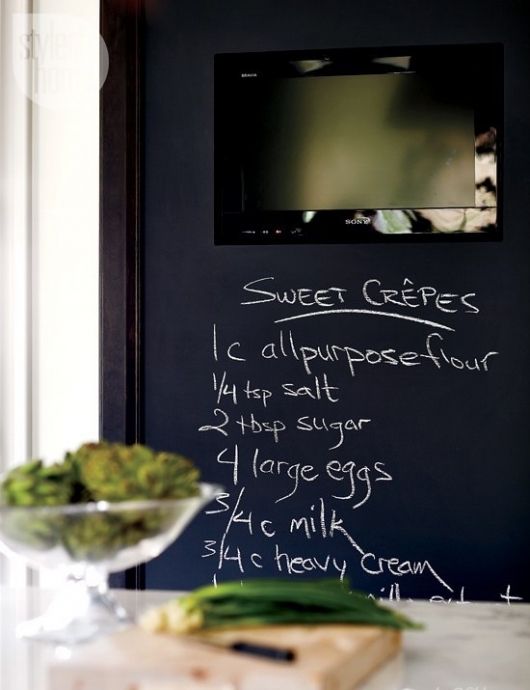 style at home
BRAVIA
SONY
SWEET CRÊPES
1c allpurpose flour
1/4 tsp salt
2 tbsp sugar
4 large eggs
3/4 c milk
3/4 c heavy cream